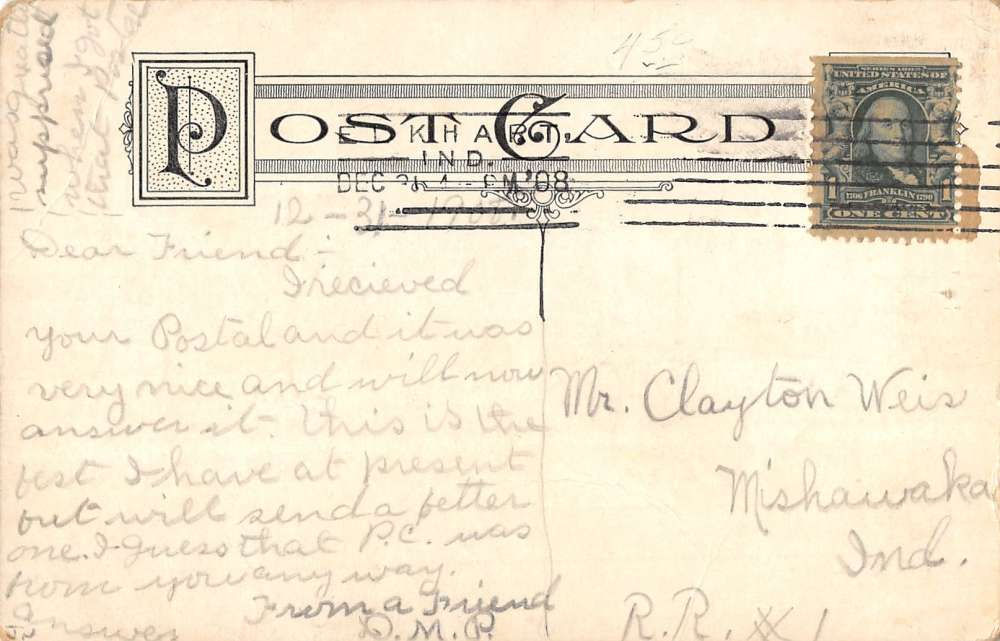 45c
POST CARD
ELKHART
IND.
DEC 31 4-PM '08
SERIES 1902
UNITED STATES OF
AMERICA
1706 FRANKLIN 1790
ONE CENT
12-31-1908
Dear Friend:-
I recieved
your Postal and it was
very nice and will now
answer it. This is the
best I have at present
but will send a better
one. I guess that P.C. was
from you any way.
Answer
From a Friend
D.M.P.
I was greatly
suppprised
when I got
that Postal
Mr. Clayton Weis
Mishawaka
Ind.
R.R. # 1